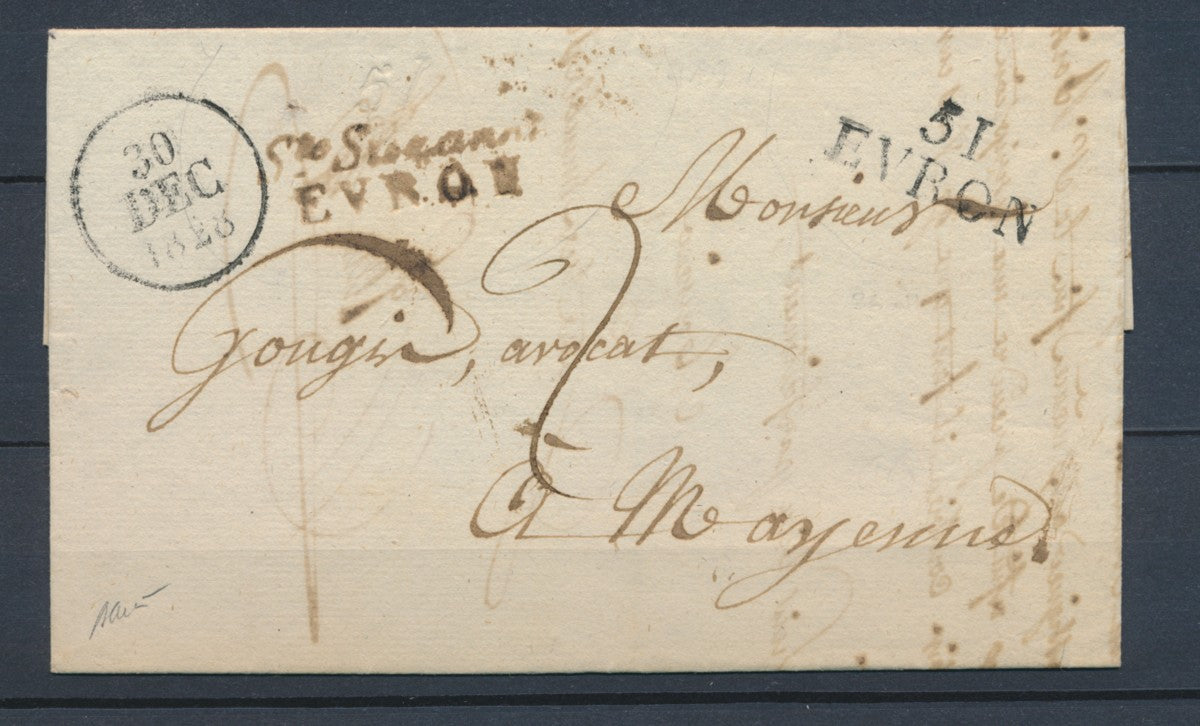 30
DEC
1828
Ste Suzanne
EVRON
51
EVRON
Monsieur
Gougis, avocat,
2
à Mayenne.